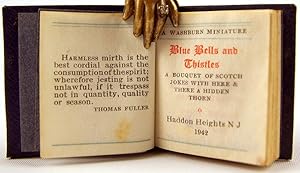 HARMLESS mirth is the
best cordial against the
consumption of the spirit;
wherefore jesting is not
unlawful, if it trespass
not in quantity, quality
or season.
THOMAS FULLER
A WASHBURN MINIATURE
Blue Bells and
Thistles
A BOUQUET OF SCOTCH
JOKES WITH HERE &
THERE A HIDDEN
THORN
Haddon Heights N J
1942